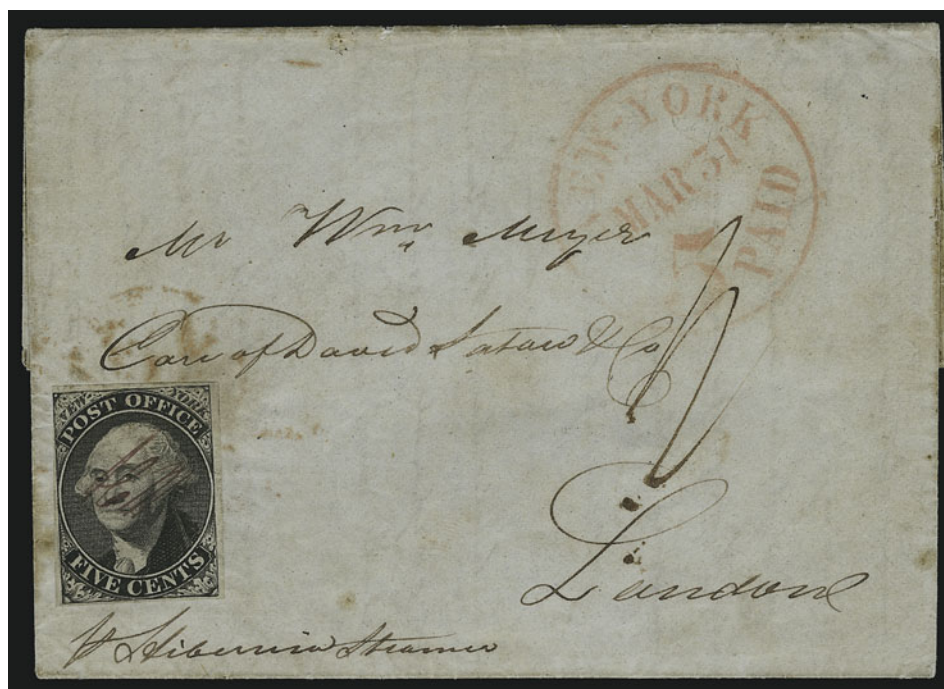 NEW-YORK
MAR 31
PAID
Mr Wm. Meyer
Care of David & Co
NEW YORK
POST OFFICE
FIVE CENTS
London
Hibernia Steamer